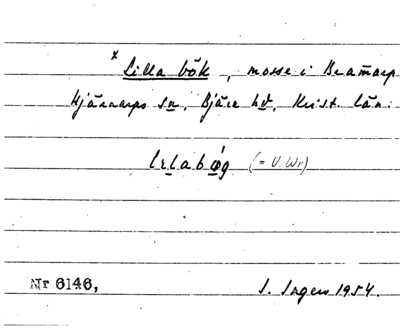 x Lilla bök, mosse i Bramarp
Hjärnarps sn, Bjäre hd, Krist. län.
lɩlabǿg (= U. Wr)
Nr 6146,
I. Ingers 1954.